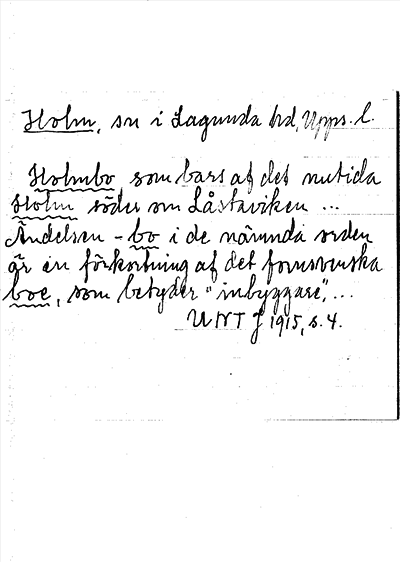 Holm, sn i Lagunda hd, Upps. l.
Holmbo, som bars af det nutida
Holm söder om Låstaviken ...
Ändelsen - bo i de nämnda orden
är en förkortning af det fornsvenska
boe, som betyder "inbyggare", ...
UNT J 1915, s. 4.